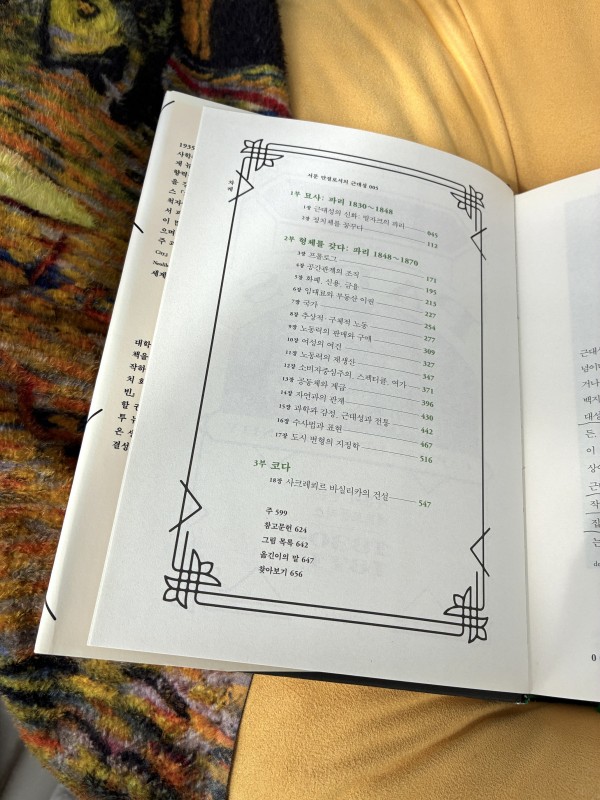 차례
서문 단절로서의 근대성 005
1부 묘사: 파리 1830~1848
1장 근대성의 신화: 발자크의 파리 045
2장 정치체를 꿈꾸다 112
2부 형체를 갖다: 파리 1848~1870
3장 프롤로그 171
4장 공간관계의 조직 195
5장 화폐, 신용, 금융 215
6장 임대료와 부동산 이권 227
7장 국가 254
8장 추상적·구체적 노동 277
9장 노동력의 판매와 구매 309
10장 여성의 여건 327
11장 노동력의 재생산 347
12장 소비자중심주의, 스펙터클, 여가 371
13장 공동체와 계급 396
14장 자연과의 관계 430
15장 과학과 감정, 근대성과 전통 442
16장 수사법과 표현 467
17장 도시 변형의 지정학 516
3부 코다
18장 사크레쾨르 바실리카의 건설 547
주 599
참고문헌 624
그림 목록 642
옮긴이의 말 647
찾아보기 656
1935
사학
제 뉴
향력
을
스
적자
서
이
으며
주
세계
대학
책을
작하
치
빈,
할
투
은
결성
근대성
넘어
거나
백지
대상
든,
이
상
근
작
집
는
de
0